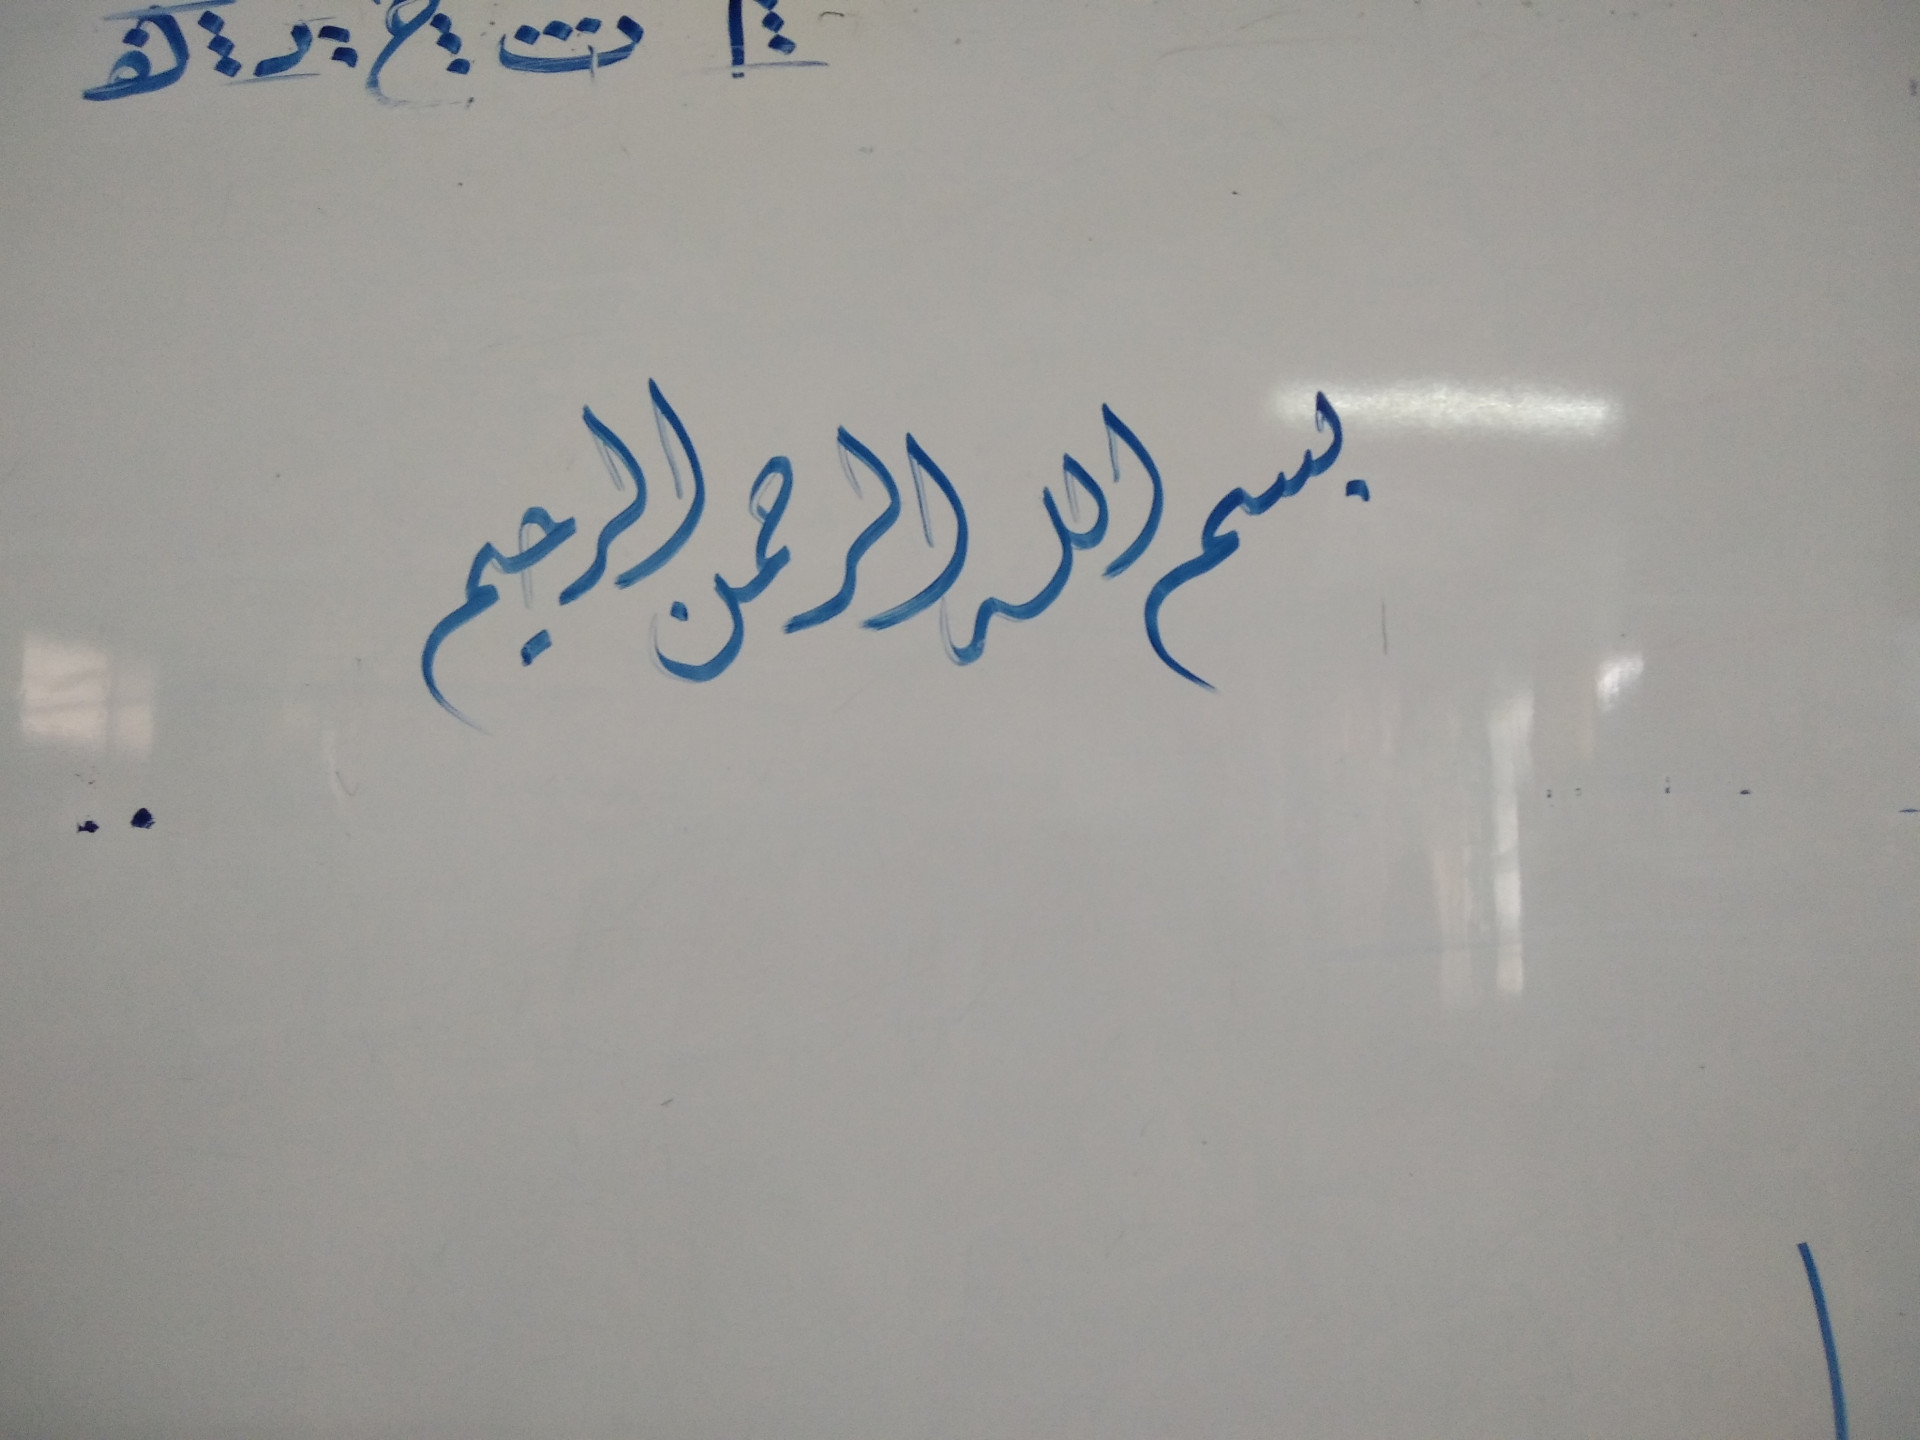 ا ت ح
بسم الله الرحمن الرحيم